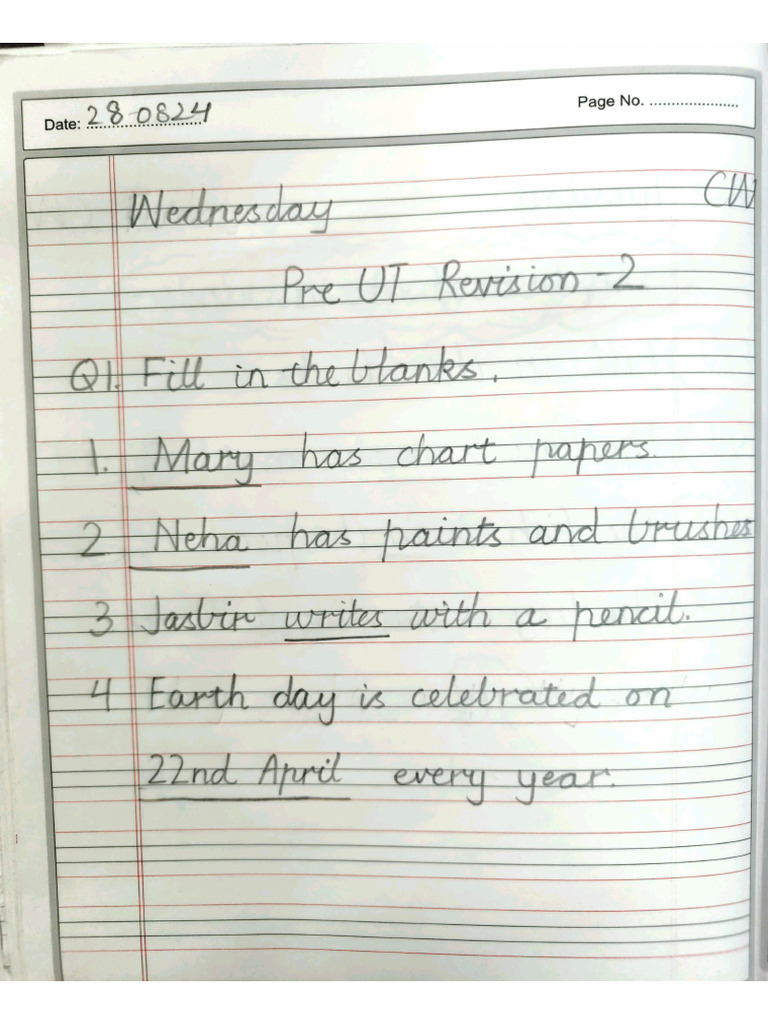 Date: 28-0824
Page No. ......................
Wednesday CW
Pre UT Revision-2
Q1. Fill in the blanks.
1. Mary has chart papers.
2 Neha has paints and brushes
3 Jasbir writes with a pencil.
4 Earth day is celebrated on
22nd April every year.